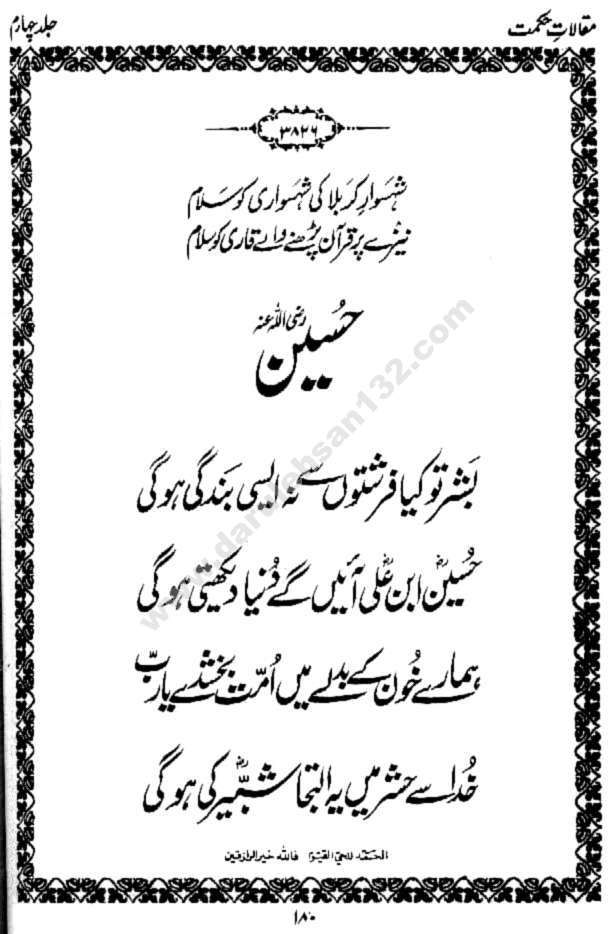 مقالاتِ حکمت
جلد چہارم
۳۸۲۶
شہسوارِ کربلا کی شہسواری کو سَلام
نیزے پر قرآن پڑھنے والے قاری کو سَلام
حُسین رضی اللہ عنہ
بَشر تو کیا فرشتوں سے نہ ایسی بَندگی ہوگی
حُسینؓ ابن علیؓ آئیں گے دُنیا دیکھتی ہوگی
ہمارے خُون کے بدلے میں اُمّت بخشدے یارَبّ
خُدا سے حشر میں یہ التجا شبّیرؓ کی ہوگی
الحمد للحی القیوم فاللہ خیر الرازقین
۱۸۰
www.darulehsan132.com